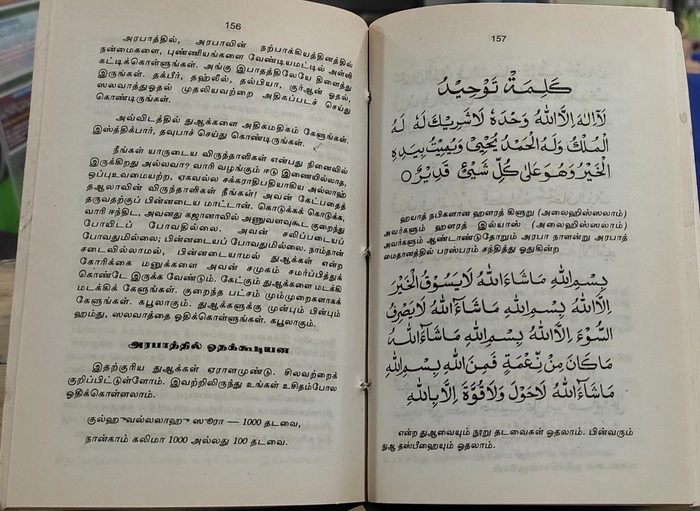 156
அரபாத்தில், அரபாவின் நற்பாக்கியத்தினத்தில்
நன்மைகளை, புண்ணியங்களை வேண்டியமட்டில் அள்ளி
கட்டிக்கொள்ளுங்கள். அங்கு இபாதத்திலேயே திளைத்து
இருங்கள். தக்பீர், தஹ்லீல், தல்பியா, குர்ஆன் ஓதல்,
ஸலவாத்துஓதல் முதலியவற்றை அதிகப்படச் செய்து
கொண்டிருங்கள்.
அவ்விடத்தில் துஆக்களை அதிகமதிகம் கேளுங்கள்.
இஸ்திக்பார், தவுபாச் செய்து கொண்டிருங்கள்.
நீங்கள் யாருடைய விருந்தாளிகள் என்பது நினைவில்
இருக்கிறது அல்லவா? வாரி வழங்கும் ஈடு இணையில்லாத,
ஒப்புஉவமையற்ற, ஏகவல்ல சக்கராதிபதியாகிய அல்லாஹ்
தஆலாவின் விருந்தாளிகள் நீங்கள்! அவன் கேட்பதைத்
தருவதற்குப் பின்னடைய மாட்டான். கொடுக்கக் கொடுக்க,
வாரி ஈந்திட, அவனது கஜானாவில் அணுவளவுகூட குறைந்து
போயிடப் போவதில்லை. அவன் சலிப்படையப்
போவதுமில்லை; பின்னடையப் போவதுமில்லை. நாம்தான்
சடைவில்லாமல், பின்னடையாமல் துஆக்கள் என்ற
கோரிக்கை மனுக்களை அவன் சமுகம் சமர்ப்பித்துக்
கொண்டே இருக்க வேண்டும். கேட்கும் துஆக்களை மடக்கி
மடக்கிக் கேளுங்கள். குறைந்த பட்சம் மும்முறைகளாகக்
கேளுங்கள். கபூலாகும். துஆக்களுக்கு முன்பும் பின்பும்
ஹம்து, ஸலவாத்தை ஓதிக்கொள்ளுங்கள். கபூலாகும்.
அரபாத்தில் ஓதக்கூடியன
இதற்குரிய துஆக்கள் ஏராளமுண்டு. சிலவற்றைக்
குறிப்பிட்டுள்ளோம். இவற்றிலிருந்து உங்கள் உசிதம்போல
ஓதிக்கொள்ளலாம்.
குல்ஹுவல்லலாஹு ஸூரா — 1000 தடவை,
நான்காம் கலிமா 1000 அல்லது 100 தடவை.
157
كَلِمَةُ تَوْحِيْدُ
لَآ اِلٰهَ اِلَّا اللّٰهُ وَحْدَهٗ لَاشَرِيْكَ لَهٗ لَهُ
الْمُلْكُ وَلَهُ الْحَمْدُ يُحْيِيْ وَيُمِيْتُ بِيَدِهِ
الْخَيْرُ وَهُوَ عَلٰى كُلِّ شَيْئٍ قَدِيْرٌ ○
ஹயாத் நபிகளான ஹளரத் கிளுறு (அலைஹிஸ்ஸலாம்)
அவர்களும் ஹளரத் இல்யாஸ் (அலைஹிஸ்ஸலாம்)
அவர்களும் ஆண்டாண்டுதோறும் அரபா நாளன்று அரபாத்
மைதானத்தில் பரஸ்பரம் சந்தித்து ஓதுகின்ற
بِسْمِ اللّٰهِ مَاشَآءَ اللّٰهُ لَا يَسُوْقُ الْخَيْرَ
اِلَّا اللّٰهُ بِسْمِ اللّٰهِ مَاشَآءَ اللّٰهُ لَا يَصْرِفُ
السُّوْءَ اِلَّا اللّٰهُ بِسْمِ اللّٰهِ مَاشَآءَ اللّٰهُ
مَاكَانَ مِنْ نِّعْمَةٍ فَمِنَ اللّٰهِ بِسْمِ اللّٰهِ
مَاشَآءَ اللّٰهُ لَاحَوْلَ وَلَاقُوَّةَ اِلَّا بِاللّٰهِ
என்ற துஆவையும் நூறு தடவைகள் ஓதலாம். பின்வரும்
துஆ தஸ்பீஹையும் ஓதலாம்.